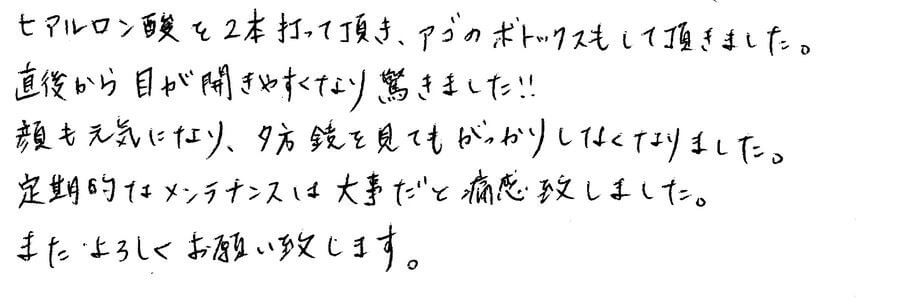 ヒアルロン酸を2本打って頂き、アゴのボトックスもして頂きました。
直後から目が開きやすくなり驚きました!!
顔も元気になり、夕方鏡を見てもがっかりしなくなりました。
定期的なメンテナンスは大事だと痛感致しました。
またよろしくお願い致します。